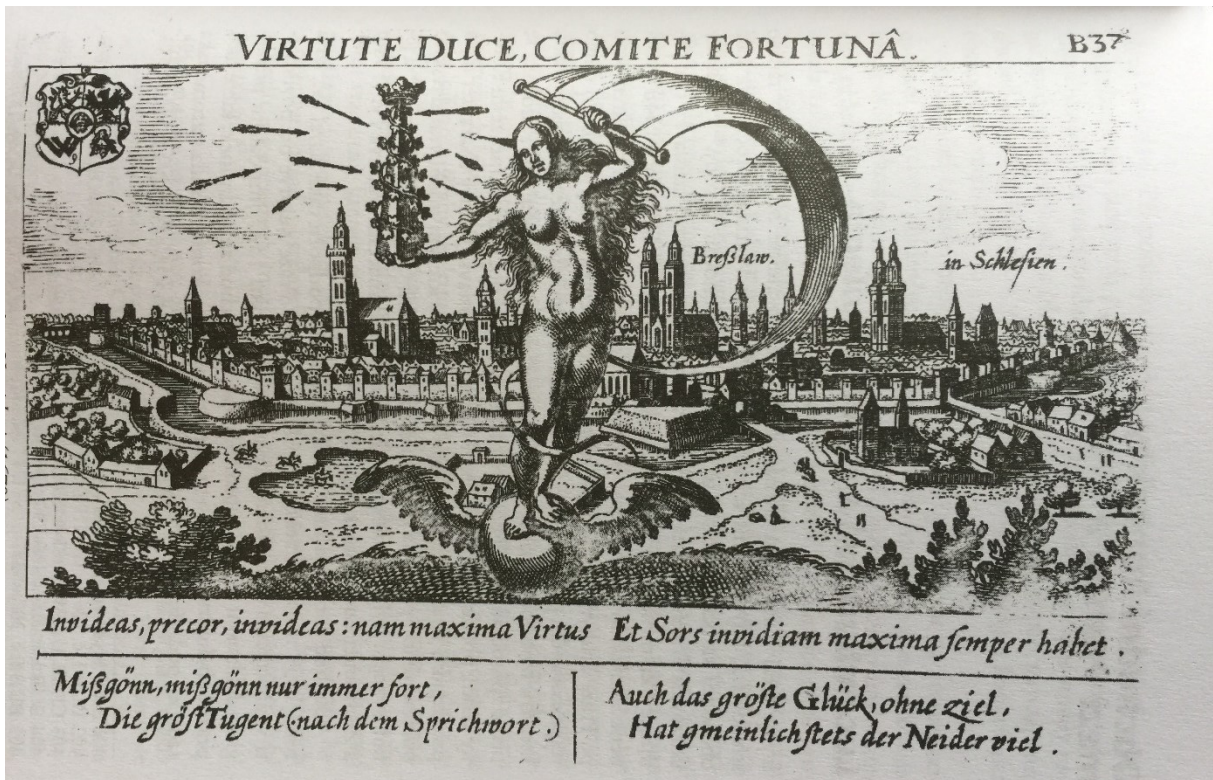 VIRTUTE DUCE, COMITE FORTUNÂ.
B37
Breßlaw.
in Schlesien.
Invideas, precor, invideas: nam maxima Virtus Et Sors invidiam maxima ſemper habet.
Mißgönn, mißgönn nur immer fort,
Die gröſt Tugent (nach dem Sprichwort.)
Auch das gröſte Glück, ohne ziel,
Hat gmeinlich ſtets der Neider viel.